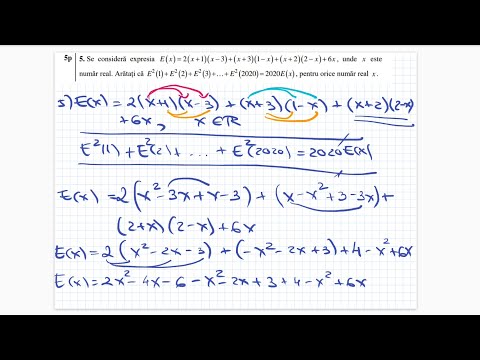 5p 5. Se consideră expresia E(x)=2(x+1)(x−3)+(x+3)(1−x)+(x+2)(2−x)+6x, unde x este
număr real. Arătați că E²(1)+E²(2)+E²(3)+...+E²(2020)=2020E(x), pentru orice număr real x.
5) E(x) = 2(x+1)(x-3) + (x+3)(1-x) + (x+2)(2-x)
+6x, x∈ℝ
E²(1) + E²(2) + ... + E²(2020) = 2020E(x)
E(x) = 2(x² - 3x + x - 3) + (x - x² + 3 - 3x) +
(2+x)(2-x) + 6x
E(x) = 2(x² - 2x - 3) + (-x² - 2x + 3) + 4 - x² + 6x
E(x) = 2x² - 4x - 6 - x² - 2x + 3 + 4 - x² + 6x